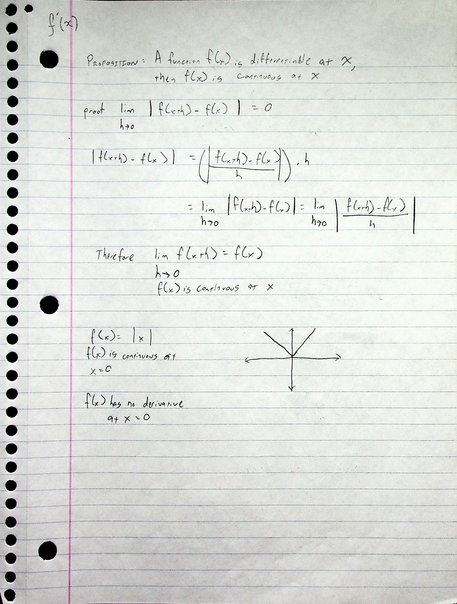 f'(x)
Proposition: A function f(x) is differentiable at x,
then f(x) is continuous at x
proof lim h→0 |f(x+h) - f(x)| = 0
|f(x+h) - f(x)| = (|f(x+h) - f(x)/h|) · h
= lim h→0 |f(x+h) - f(x)| = lim h→0 |f(x+h) - f(x)/h|
Therefore lim h→0 f(x+h) = f(x)
f(x) is continuous at x
f(x) = |x|
f(x) is continuous at
x=0
f(x) has no derivative
at x=0